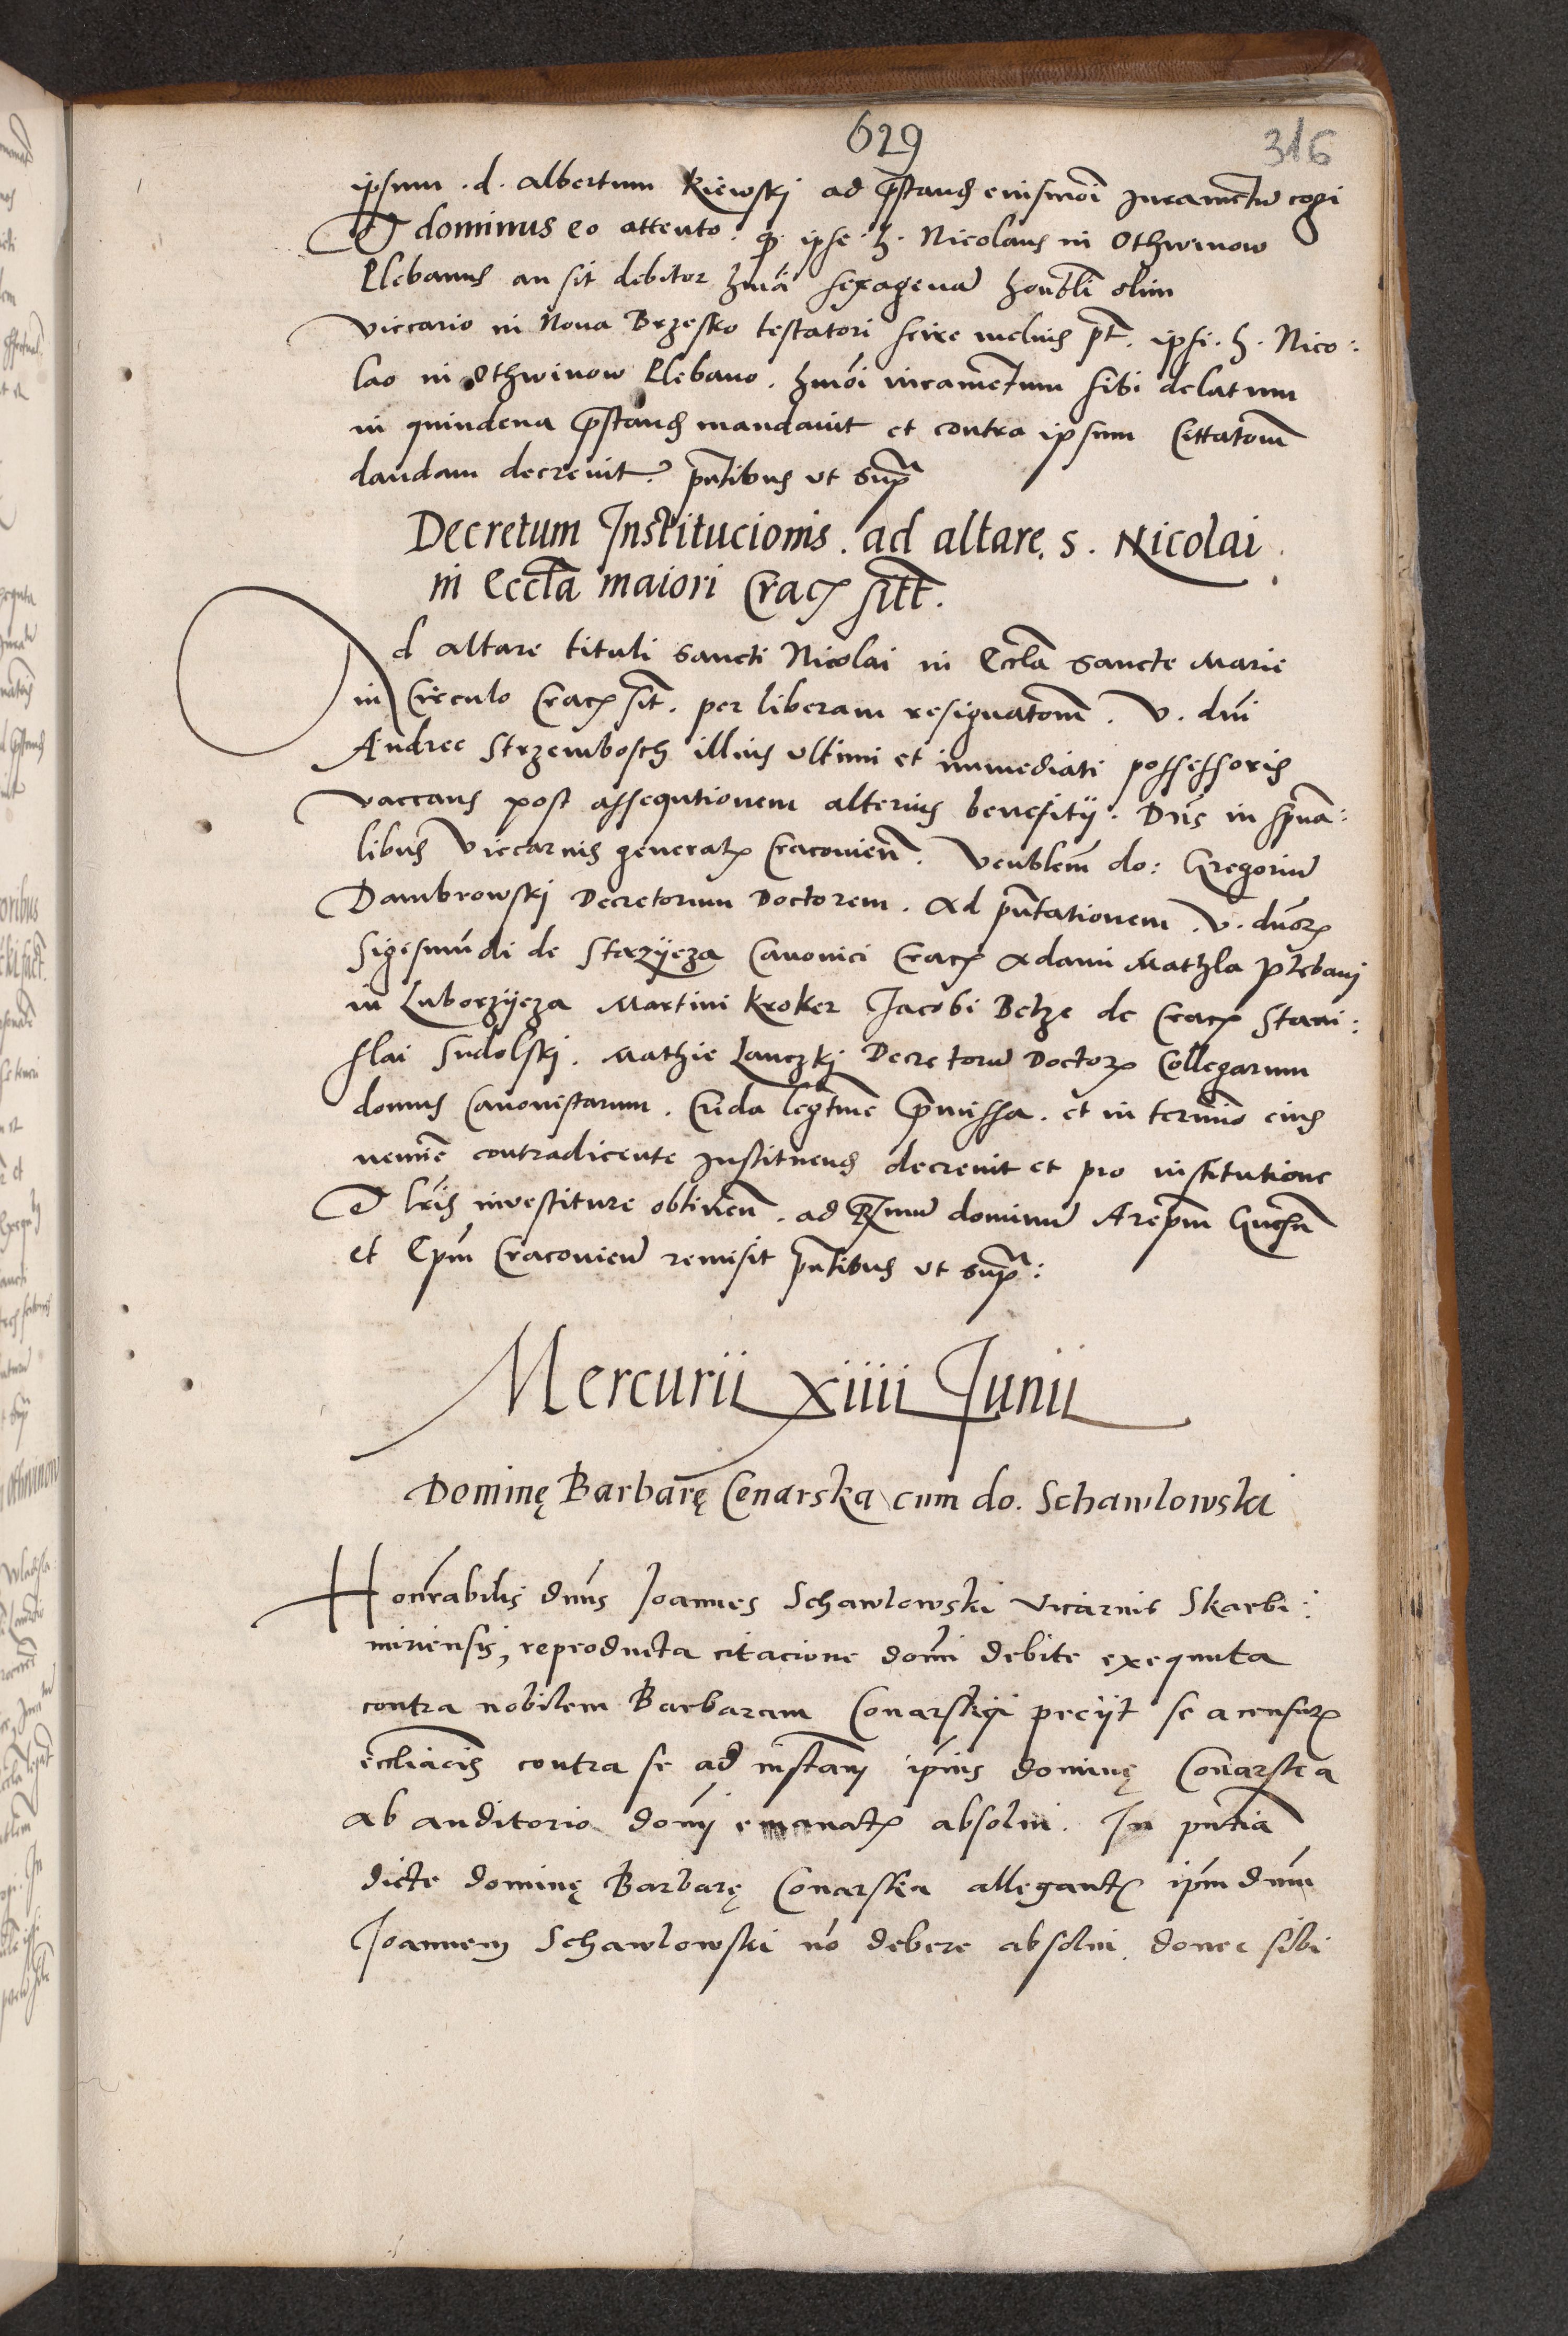 629
316
ipsum . d . Albertum Kiewskj ad prestand eiusmoi Juramentu cogi
Et dominus eo attento . q . ipse . h . Nicolaus in Othwinow
Plebanus an sit debitor hmoi sexagenar honbli olim
viccario in Nova Brzesko testatori scire melius pt . ipsi . h . Nico:
lao in Othwinow Plebano . hmoi iuramentum sibi delatum
in quindena prestand mandavit et contra ipsum Cittatom
dandam decrevit . pntibus ut supra
Decretum Institucionis . ad altare . s . Nicolai .
in Eccla maiori Crac sitt .
Ad altare tituli Sancti Nicolai in Eccla Sancte Marie
in Circulo Crac sit . per liberam resignatom . v . dni
Andree Strzembosch illius ultimi et immediati possessoris
vaccans post assequtionem alterius benefitij . Dns in spua:
libus viccarius generalis Cracovien . venblem do : Gregoriu
Dambrowskj Decretorum Doctorem . Ad pntationem . v . dnor
Sigesmundi de Strzijeza Canonici Crac Adami Mathla plebanj
in Luborzijcza Martini Kroker Jacobi Belze de Crac Stani:
slai Sudolskj . Mathie Lanczkj Decretoru Doctor Collegarum
domus Canonistarum . Crida legtime premissa . et in termino eius
nemine contradicente Instituend decrevit et pro institutione
Et lris investiture obtinen . ad Rmu dominu Arepm Gnesn
et Epm Cracovien remisit pntibus ut supra :
Mercurii xiiii Junii
Dominę Barbarę Conarska cum do . Schawlowski
Honrabilis dnus Joannes Schawlowski vicarius Skarbi:
miriensis, reproducta citacione domi debite exequuta
contra nobilem Barbaram Conarskyi peciit se a censur
eccliacis contra se ad instam ipius dominę Conarska
ab auditorio domj emanat absolui . In pntia
dicte dominę Barbarę Conarska allegant ipm dnm
Joannem Schawlowski no debere absolui donec sibi